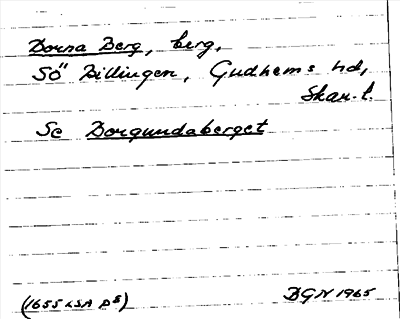 Dorna Berg, berg,
Sö" Billingen, Gudhems hd,
Skar. l.
Se Dorgundaberget
(1655 LSA P5)
BGN 1965